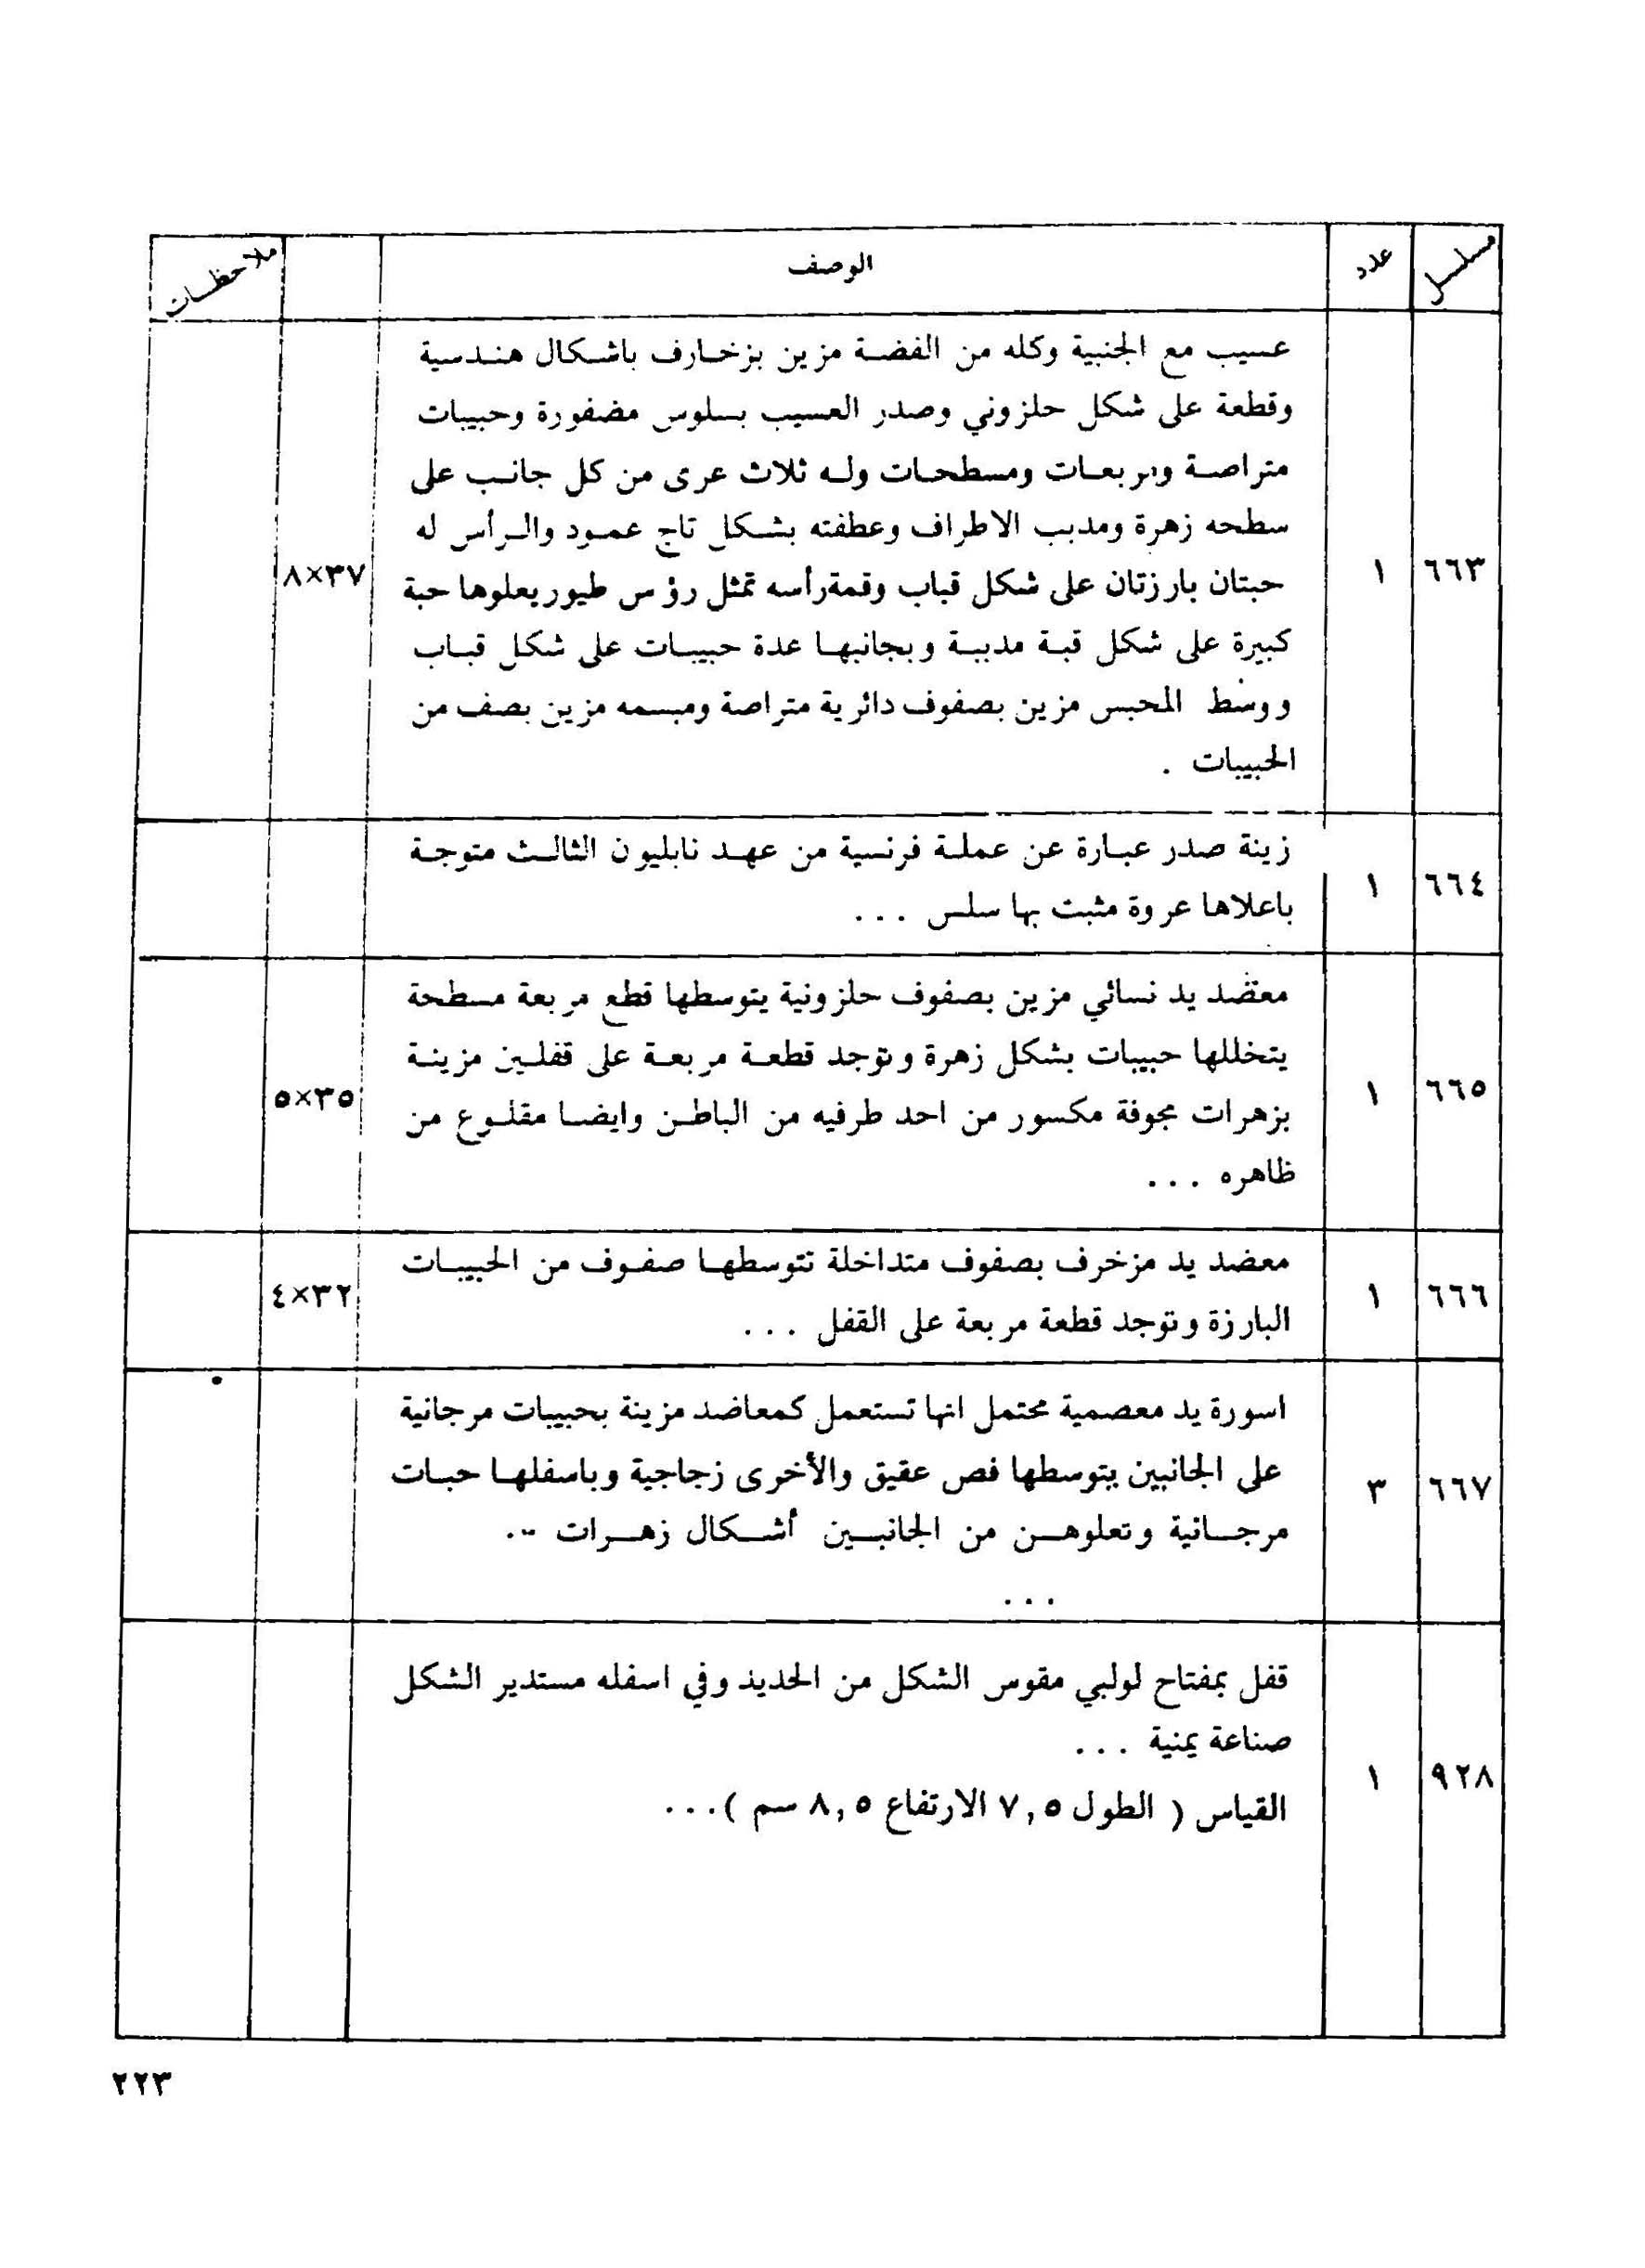 مسلسل عدد الوصف ملاحظات
عسيب مع الجنبية وكله من الفضة مزين بزخارف باشكال هندسية
وقطعة على شكل حلزوني وصدر العسيب بسلوس مضفورة وحبيبات
متراصة ومربعات ومسطحات وله ثلاث عرى من كل جانب على
سطحه زهرة ومدبب الاطراف وعطفته بشكل تاج عمود والرأس له
٦٦٣ ١ حبتان بارزتان على شكل قباب وقمة رأسه تمثل رؤس طيور يعلوها حبة ٣٧×٨
كبيرة على شكل قبة مدببة وبجانبها عدة حبيبات على شكل قباب
ووسط المحبس مزين بصفوف دائرية متراصة ومبسمه مزين بصف من
الحبيبات .
زينة صدر عبارة عن عملة فرنسية من عهد نابليون الثالث متوجة
٦٦٤ ١ باعلاها عروة مثبت بها سلس ...
معتضد يد نسائي مزين بصفوف حلزونية يتوسطها قطع مربعة مسطحة
يتخللها حبيبات بشكل زهرة وتوجد قطعة مربعة على قفلين مزينة
٦٦٥ ١ بزهرات مجوفة مكسور من احد طرفيه من الباطن وايضا مقلوع من ٣٥×٥
ظاهره ...
معضد يد مزخرف بصفوف متداخلة تتوسطها صفوف من الحبيبات
٦٦٦ ١ البارزة وتوجد قطعة مربعة على القفل ... ٣٢×٤
اسورة يد معصمية محتمل انها تستعمل كمعاضد مزينة بحبيبات مرجانية
٦٦٧ ٣ على الجانبين يتوسطها فص عقيق والأخرى زجاجية وباسفلها حبات
مرجانية وتعلوهن من الجانبين أشكال زهرات ...
...
قفل بمفتاح لولبي مقوس الشكل من الحديد وفي اسفله مستدير الشكل
صناعة يمنية ...
٩٢٨ ١ القياس ( الطول ٧,٥ الارتفاع ٨,٥ سم )...
٢٢٣